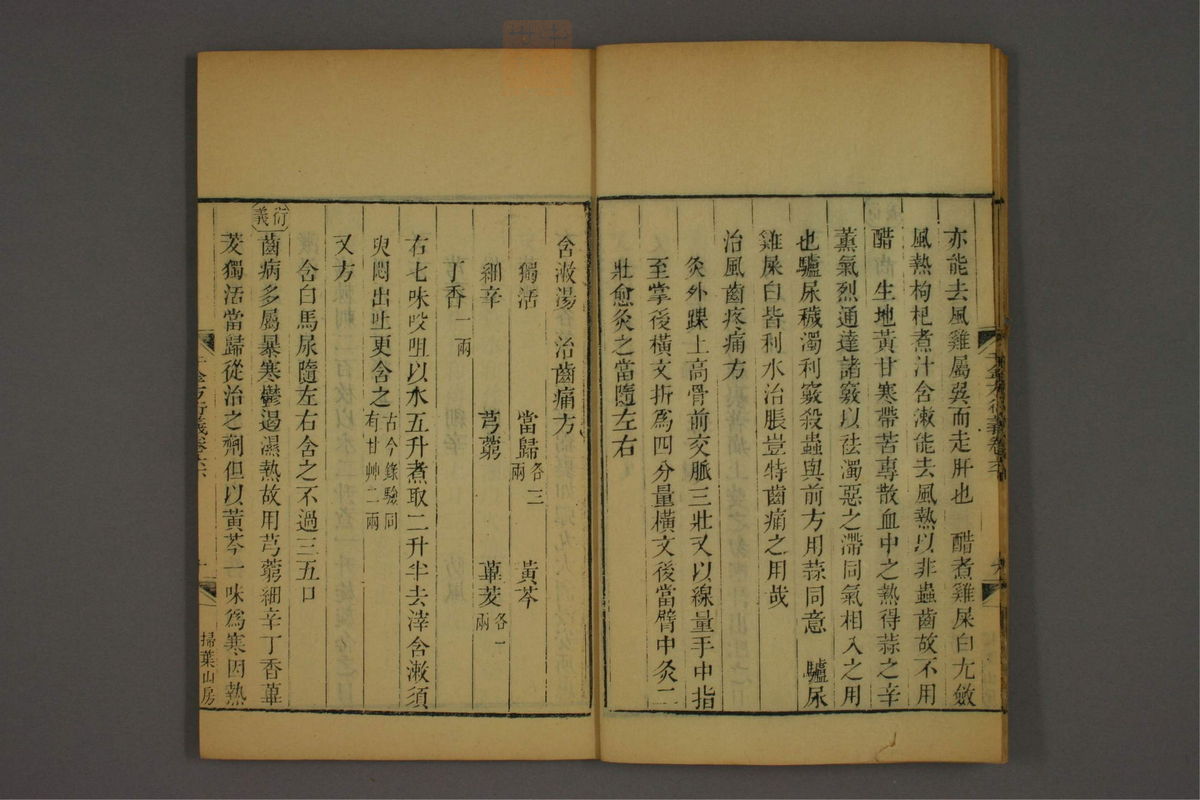 亦能去風雞屬巽而走肝也　醋煮雞屎白尢斂
風熱枸杞煮汁含漱能去風熱以非蟲齒故不用
醋尙生地黃甘寒帶苦專散血中之熱得蒜之辛
薰氣烈通達諸竅以祛濁惡之滯同氣相入之用
也驢尿穢濁利竅殺蟲與前方用蒜同意　驢尿
雞屎白皆利水治脹豈特齒痛之用哉
治風齒疼痛方
灸外踝上高骨前交脈三壯又以線量手中指
至掌後橫文折爲四分量橫文後當臂中灸二
壯愈灸之當隨左右
千金方衍義卷六
含漱湯　治齒痛方
獨活　當歸各三兩　黃芩
細辛　芎藭　蓽茇各一兩
丁香一兩
右七味㕮咀以水五升煮取二升半去滓含漱須
臾悶出吐更含之古今錄驗同有甘艸二兩
又方
含白馬尿隨左右含之不過三五口
衍義　齒病多屬暴寒鬱遏濕熱故用芎藭細辛丁香蓽
茇獨活當歸從治之劑但以黃芩一味爲寒因熱
千金方衍義卷六
掃葉山房